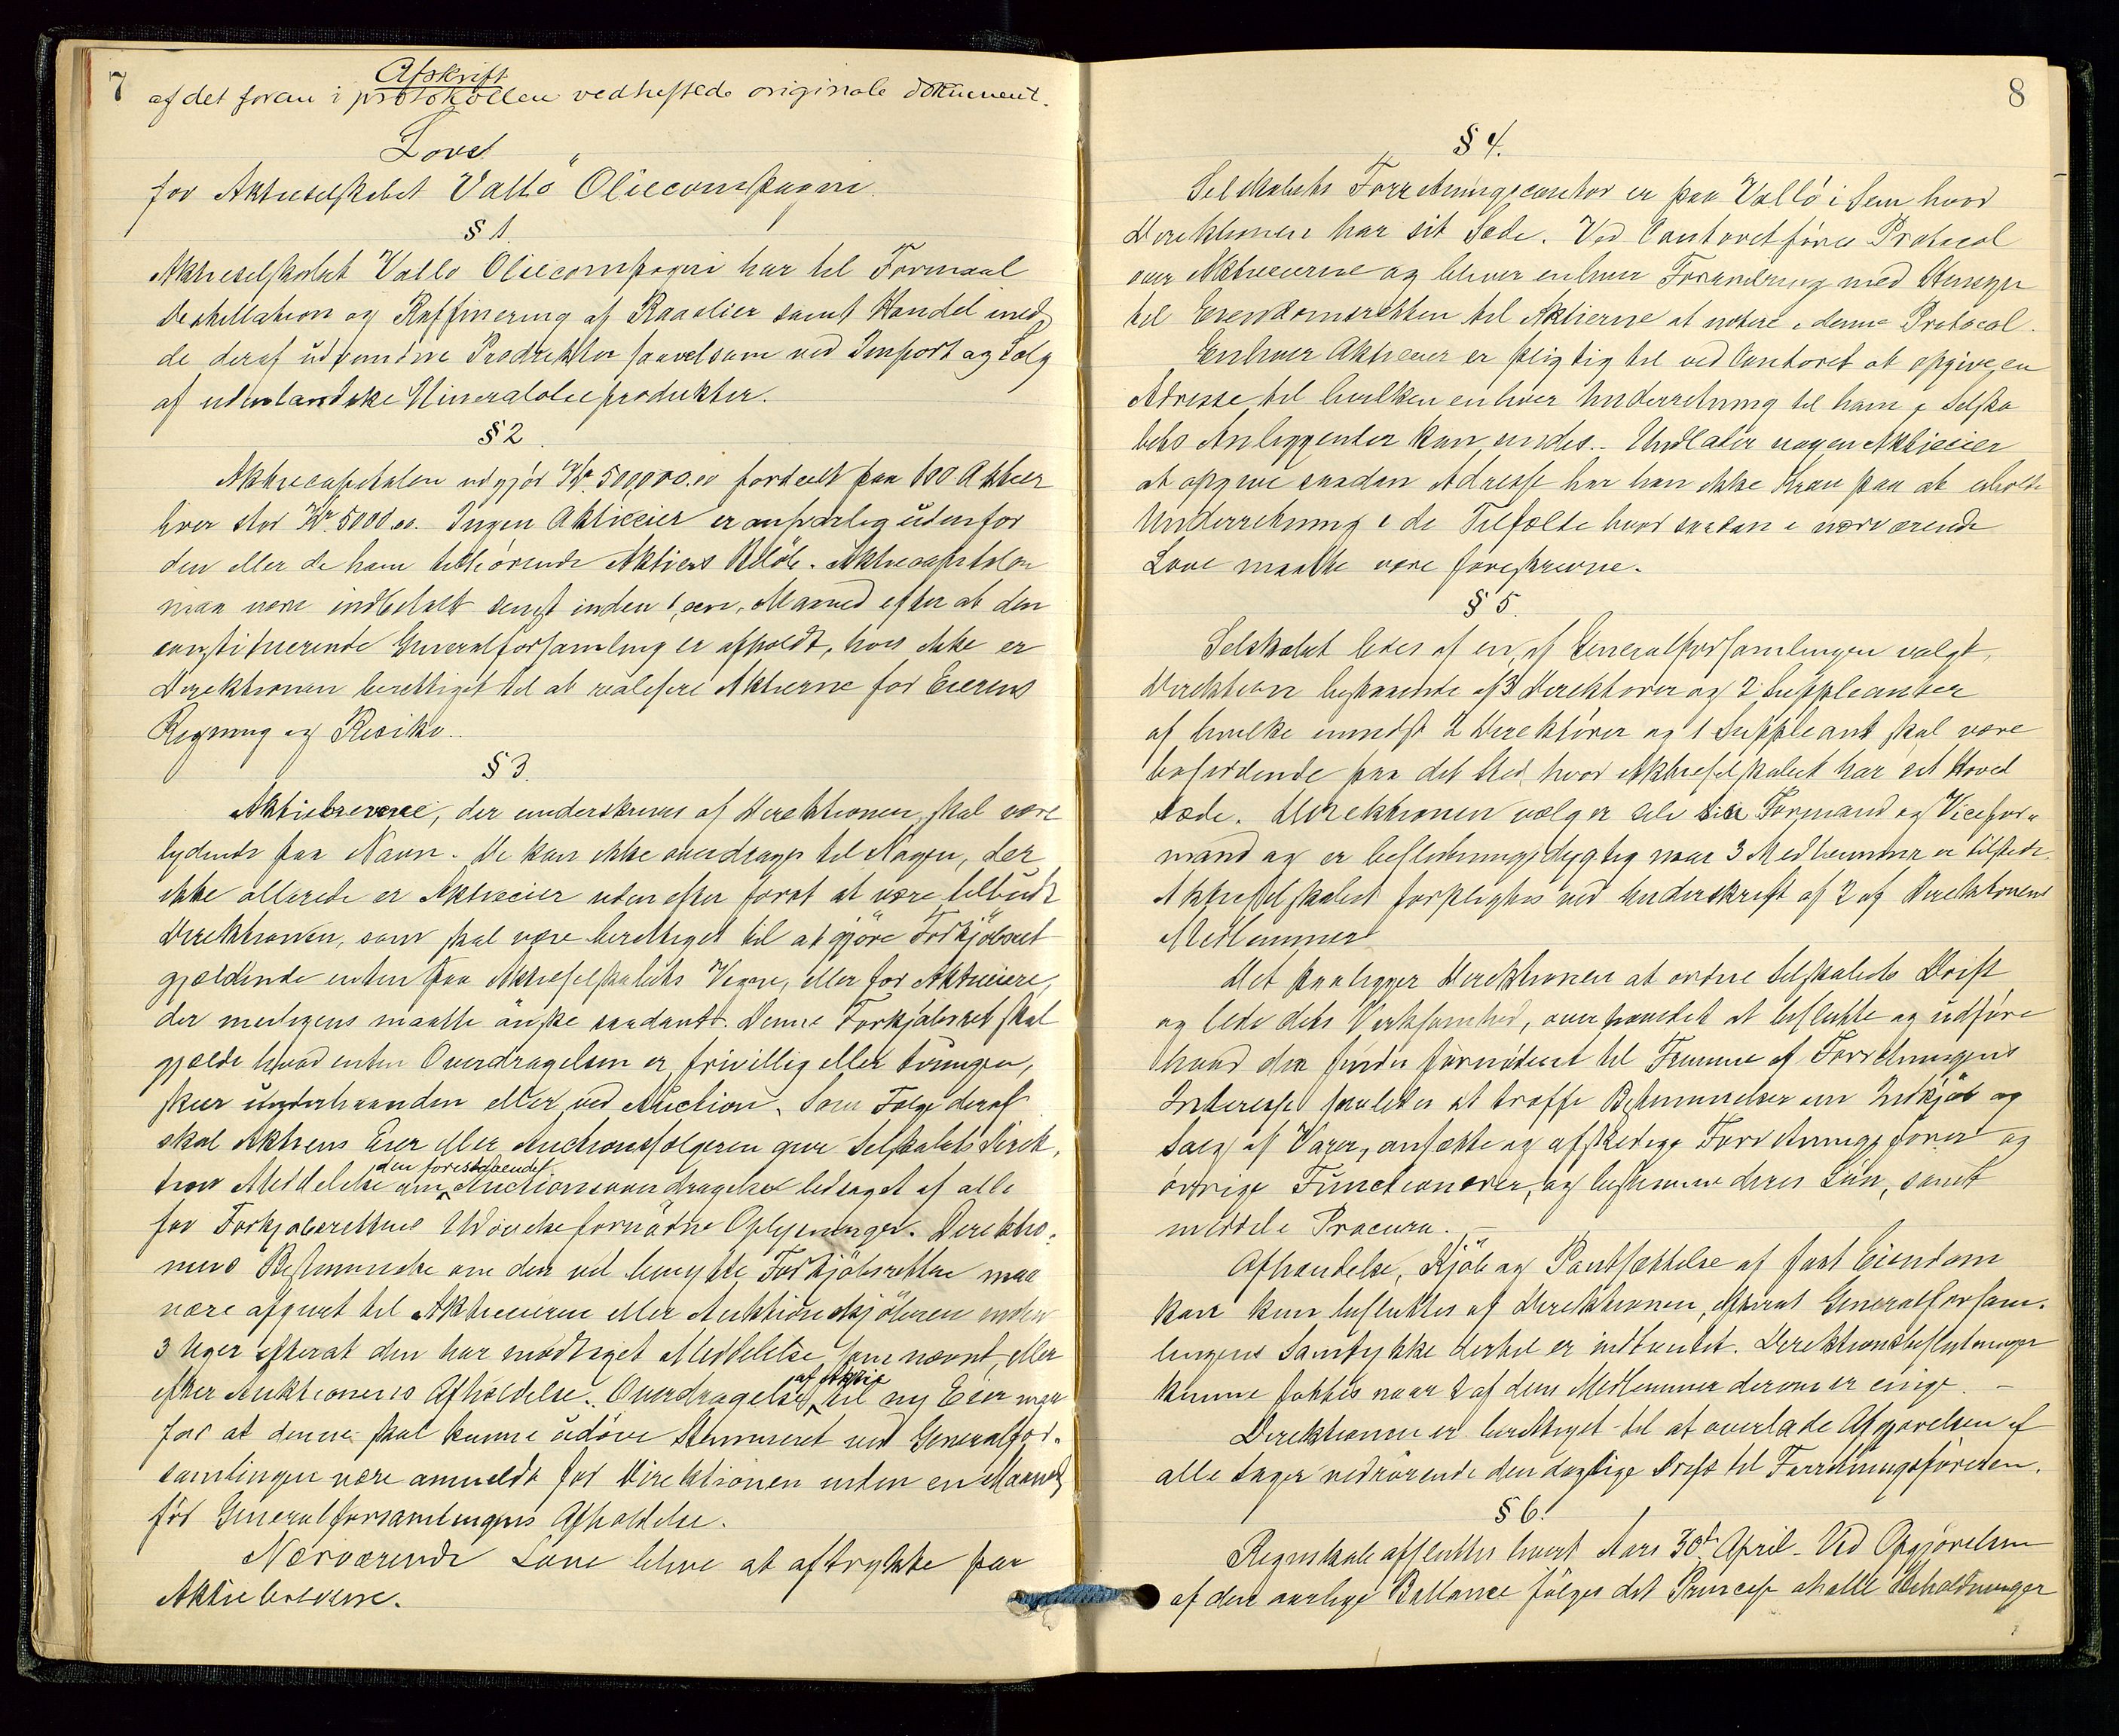 7
Afskrift
af det foran i protokollen vedheftede originale dokument.
Love
for Aktieselskabet Vallö Oliecompagni.
§ 1.
Aktieselskabet Vallö Oliecompagni har til Formaal
Destillation og Raffinering af Raaolier samt Handel med
de deraf udvundne Produkter saavelsom ved Import og Salg
af udenlandske Mineralolieprodukter.
§ 2.
Aktiecapitalen udgjør Kr. 500,000.00 fordeelt paa 100 Aktier
hver stor Kr. 5000.00. Ingen Aktieeier er ansvarlig udenfor
den eller de ham tilhørende Aktiers Beløb. Aktiecapitalen
maa være indbetalt senest inden 1, een, Maaned efter at den
constituerende Generalforsamling er afholdt, hvis ikke er
Direktionen berettiget til at realisere Aktierne for Eierens
Regning og Risiko.
§ 3.
Aktiebrevene, der underskrives af Direktionen, skal være
lydende paa Navn. De kan ikke overdrages til Nogen, der
ikke allerede er Aktieeier uden efter først at være tilbudt
Direktionen, som skal være berettiget til at gjöre Forkjöbsret
gjældende enten paa Aktieselskabets Vegne, eller for Aktieeiere,
der muligens maatte önske saadant. Denne Forkjøbsret skal
gjælde hvad enten Overdragelsen er frivillig eller tvungen,
skeer underhaanden eller ved Auction. Som Følge deraf
skal Aktiens Eier eller Auctionssælgeren give Selskabets Direk-
tion Meddelelse om den forestaaende Auctionsoverdragelse ledsaget af alle
for Forkjøbsrettens Udövelse fornödne Oplysninger. Direktio-
nens Bestemmelse om den vil benytte Forkjöbsretten maa
være afgivet til Aktieeieren eller Auktionskjöberen inden
3 Uger efterat den har modtaget Meddelelse som nævnt, eller
efter Auktionens Afholdelse. Overdragelse af Aktie til ny Eier maa
for at denne skal kunne udöve Stemmeret ved Generalfor-
samlingen være anmeldt for Direktionen inden en Maaned
før Generalforsamlingens Afholdelse.
Nærværende Love blive at aftrykke paa
Aktiebrevene.
8
§ 4.
Selskabets Forretningscontor er paa Vallö i Sem hvor
Direktionen har sit Sæde. Ved Contoret føres Protocol
over Aktieeierne og bliver enhver Forandring med Hensyn
til Eiendomsretten til Aktierne at notere i denne Protocol.
Enhver Aktieeier er pligtig til ved Contoret at opgive en
Adresse til hvilken enhver Underretning til ham i Selska
bets Anliggender kan sendes. Undlader nogen Aktieeier
at opgive saadan Adresse har han ikke Krav paa at erholde
Underretning i de Tilfælde hvor saadan i nærværende
Love maatte være foreskrevne.
§ 5.
Selskabet ledes af en, af Generalforsamlingen valgt,
Direktion bestaaende af 3 Direktører og 2 Suppleanter
af hvilke mindst 2 Direktører og 1 Suppleant skal være
bosiddende paa det Sted, hvor Aktieselskabet har sit Hoved
sæde. Direktionen vælger selv sin Formand og Vicefor-
mand og er beslutningsdygtig naar 3 Medlemmer er tilstede.
Aktieselskabet forpligtes ved Underskrift af 2 af Direktionens
Medlemmer
Det paaligger Direktionen at ordne Selskabets Drift
og lede dets Virksomhed, overhovedet at beslutte og udføre
hvad den finder fornødent til Fremme af Forretningens
Interesse saaledes at træffe Bestemmelser om Indkjöb og
Salg af Varer, ansætte og afskedige Forretningsfører og
övrige Functionærer, og bestemme deres Løn, samt
meddele Procura. –
Afhændelse, Kjöb og Pantsættelse af fast Eiendom
kan kun besluttes af Direktionen, efterat Generalforsam-
lingens Samtykke dertil er indhentet. Direktionsbeslutninger
kunne fattes naar 2 af dens Medlemmer derom er enige. –
Direktionen er berettiget til at overlade Afgjørelsen af
alle Sager vedrörende den daglige Drift til Forretningsføreren.
§ 6.
Regnskabet afsluttes hvert Aars 30te April. Ved Opgjørelsen
af den aarlige Ballance fölges det Princip at alle Beholdninger